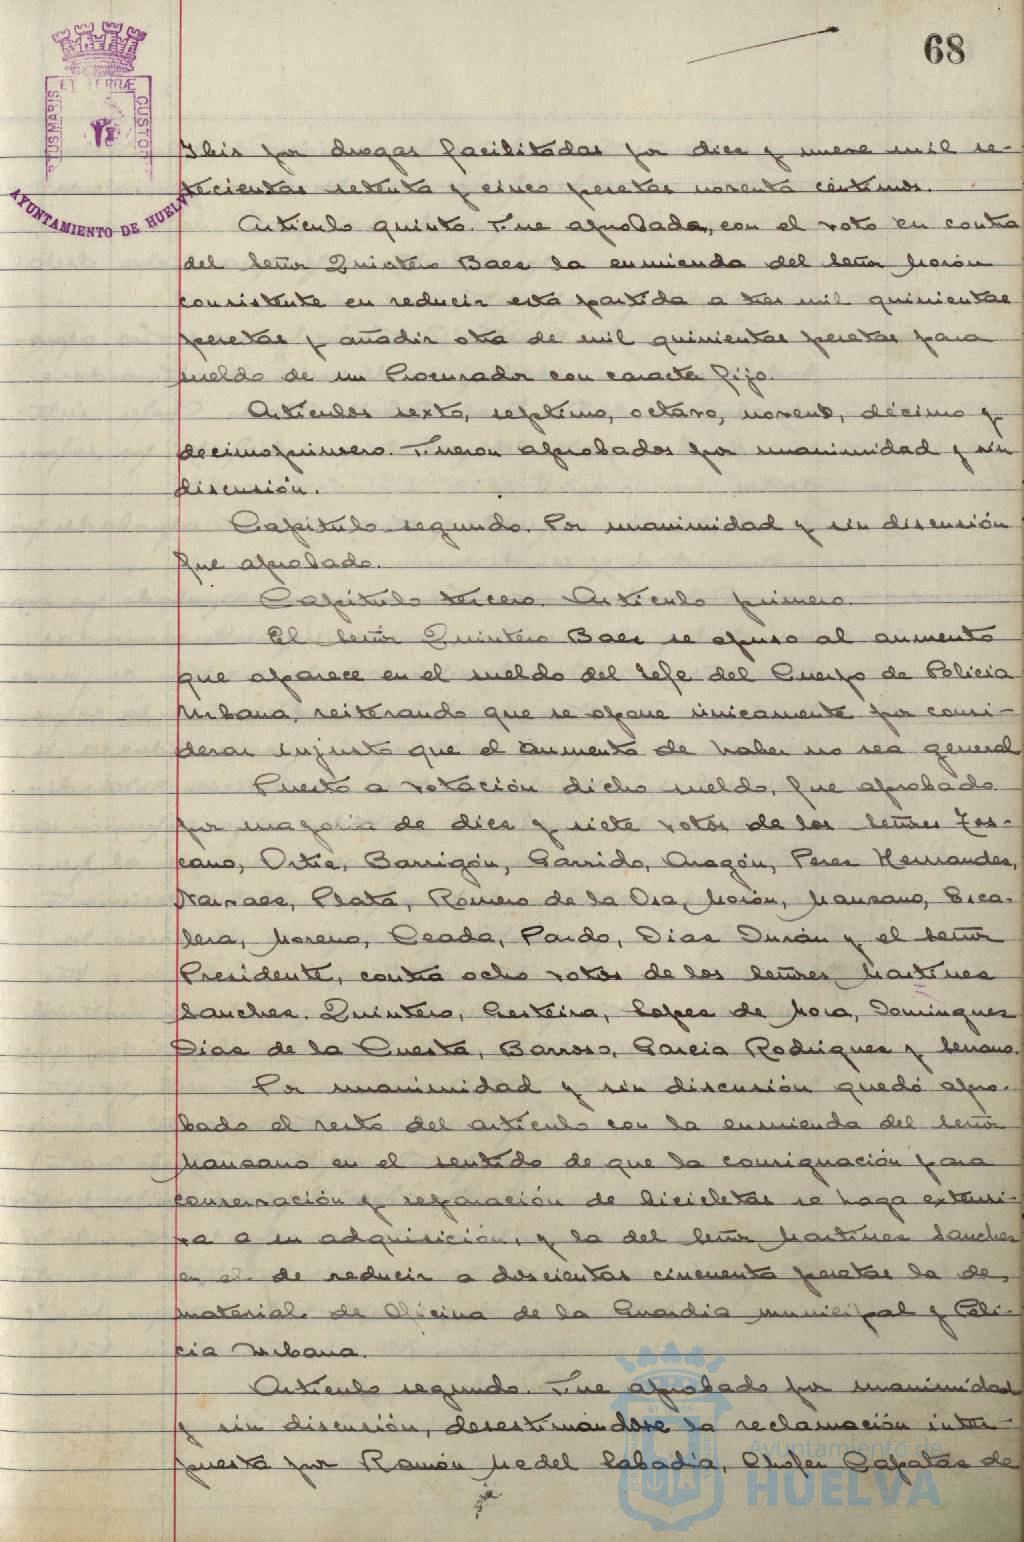 68
PORTUS MARIS ET TERRÆ CUSTODIA
AYUNTAMIENTO DE HUELVA
Ibis por drogas facilitadas por diez y nueve mil se-
tecientas setenta y cinco pesetas noventa céntimos.
Artículo quinto. Fue aprobada, con el voto en contra
del Señor Quintero Baez la enmienda del Señor Morón
consistente en reducir esta partida a tres mil quinientas
pesetas y añadir otra de mil quinientas pesetas para
sueldo de un Procurador con caracter fijo.
Artículos sexto, septimo, octavo, noveno, décimo y
decimoprimero. Fueron aprobados por unanimidad y sin
discusión.
Capitulo segundo. Por unanimidad y sin discusión
fue aprobado.
Capitulo tercero. Artículo primero.
El Señor Quintero Baez se opuso al aumento
que aparece en el sueldo del Jefe del Cuerpo de Policia
Urbana, reiterando que se opone únicamente por consi-
derar injusto que el aumento de haber no sea general
Puesto a votación dicho sueldo, fue aprobado
por mayoria de diez y siete votos de los Señores Tos-
cano, Ortiz, Barrigón, Garrido, Aragón, Perez Hernandez,
Narvaez, Plata, Romero de la Osa, Morón, Manzano, Esca-
lera, Moreno, Ceada, Pardo, Diaz Durán y el Señor
Presidente, contra ocho votos de los Señores Martinez
Sanchez, Quintero, Gesteira, Lopez de Mora, Dominguez
Diaz de la Cuesta, Barroso, Garcia Rodriguez y Serrano.
Por unanimidad y sin discusión quedó apro-
bado el resto del artículo con la enmienda del Señor
Manzano en el sentido de que la consignación para
conservación y reparación de bicicletas se haga extensi-
va a su adquisición, y la del Señor Martinez Sanchez
en el de reducir a doscientas cincuenta pesetas la de
material de Oficina de la Guardia municipal y Poli-
cia Urbana.
Artículo segundo. Fue aprobado por unanimidad
y sin discusión, desestimándose la reclamación inter-
puesta por Ramón Medel Labadía, Chofer Capataz de
Ayuntamiento de
HUELVA